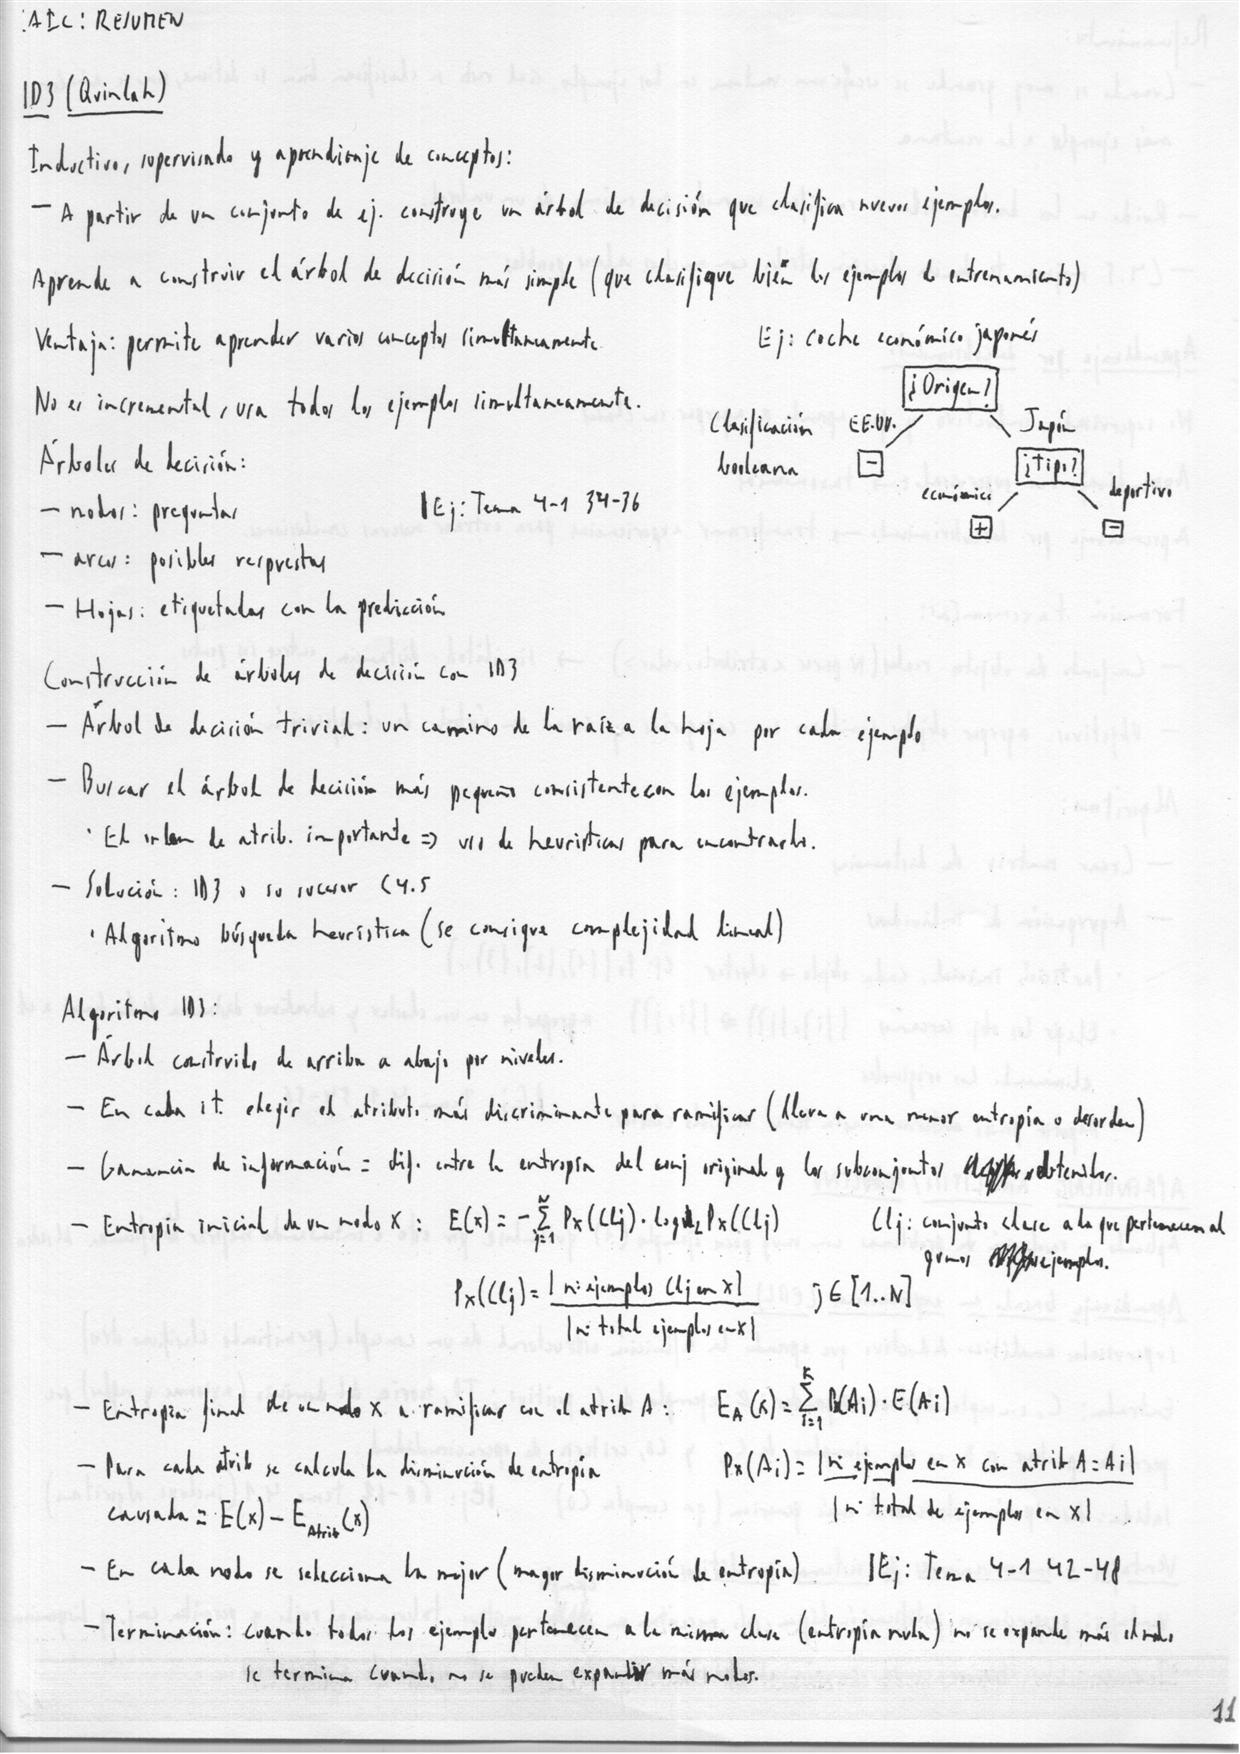 AIC: RESUMEN
ID3 (Quinlan)
Inductivo, supervisado y aprendizaje de conceptos:
- A partir de un conjunto de ej. construye un árbol de decisión que clasifica nuevos ejemplos.
Aprende a construir el árbol de decisión más simple (que clasifique bien los ejemplos de entrenamiento)
Ventaja: permite aprender varios conceptos simultaneamente
No es incremental, usa todos los ejemplos simultaneamente.
Ej: coche económico japonés
¿Origen?
Clasificación EE.UU. Japón
booleana - ¿Tipo?
económico deportivo
+ -
Árboles de decisión:
- nodos: preguntas
|Ej: Tema 4-1 34-36
- arcos: posibles respuestas
- Hojas: etiquetadas con la predicción
Construcción de árboles de decisión con ID3
- Árbol de decisión trivial: un camino de la raíz a la hoja por cada ejemplo
- Buscar el árbol de decisión más pequeño consistente con los ejemplos.
· El orden de atrib. importante => uso de heurísticas para encontrarlo.
- Solución: ID3 o su sucesor C4.5
· Algoritmo búsqueda heurística (se consigue complejidad lineal)
Algoritmo ID3:
- Árbol construido de arriba a abajo por niveles.
- En cada it. elegir el atributo más discriminante para ramificar (lleva a una menor entropía o desorden)
- Ganancia de información = dif. entre la entropía del conj original y los subconjuntos obtenidos.
- Entropía inicial de un nodo X: E(x) = - Σ j=1 N Px(Clj) · log2 Px(Clj) Clj: conjunto clase a la que pertenecen al
gunos ejemplos.
Px(Clj) = |nº ejemplos Clj en X| / |nº total ejemplos en X| j ∈ [1..N]
- Entropía final de un nodo X a ramificar con el atrib A: E_A(x) = Σ i=1 K Px(Ai) · E(Ai)
- Para cada atrib se calcula la disminución de entropía
causada = E(x) - E_Atrib(x)
Px(Ai) = |nº ejemplos en X con atrib A = Ai| / |nº total de ejemplos en X|
- En cada nodo se selecciona la mejor (mayor disminución de entropía) |Ej: Tema 4-1 42-48
- Terminación: cuando todos los ejemplos pertenecen a la misma clase (entropía nula) no se expande más el nodo
se termina cuando no se pueden expandir más nodos.
11